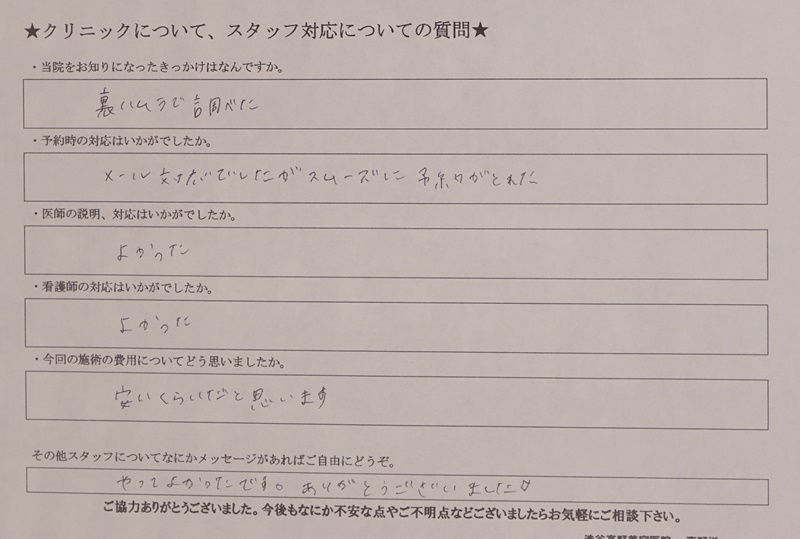 ★クリニックについて、スタッフ対応についての質問★
・当院をお知りになったきっかけはなんですか。
裏ハムラで調べた
・予約時の対応はいかがでしたか。
メール対応でしたがスムーズに予約がとれた
・医師の説明、対応はいかがでしたか。
よかった
・看護師の対応はいかがでしたか。
よかった
・今回の施術の費用についてどう思いましたか。
安いくらいだと思います
その他スタッフについてなにかメッセージがあればご自由にどうぞ。
やってよかったです。ありがとうございました
ご協力ありがとうございました。今後もなにか不安な点やご不明点などございましたらお気軽にご相談下さい。